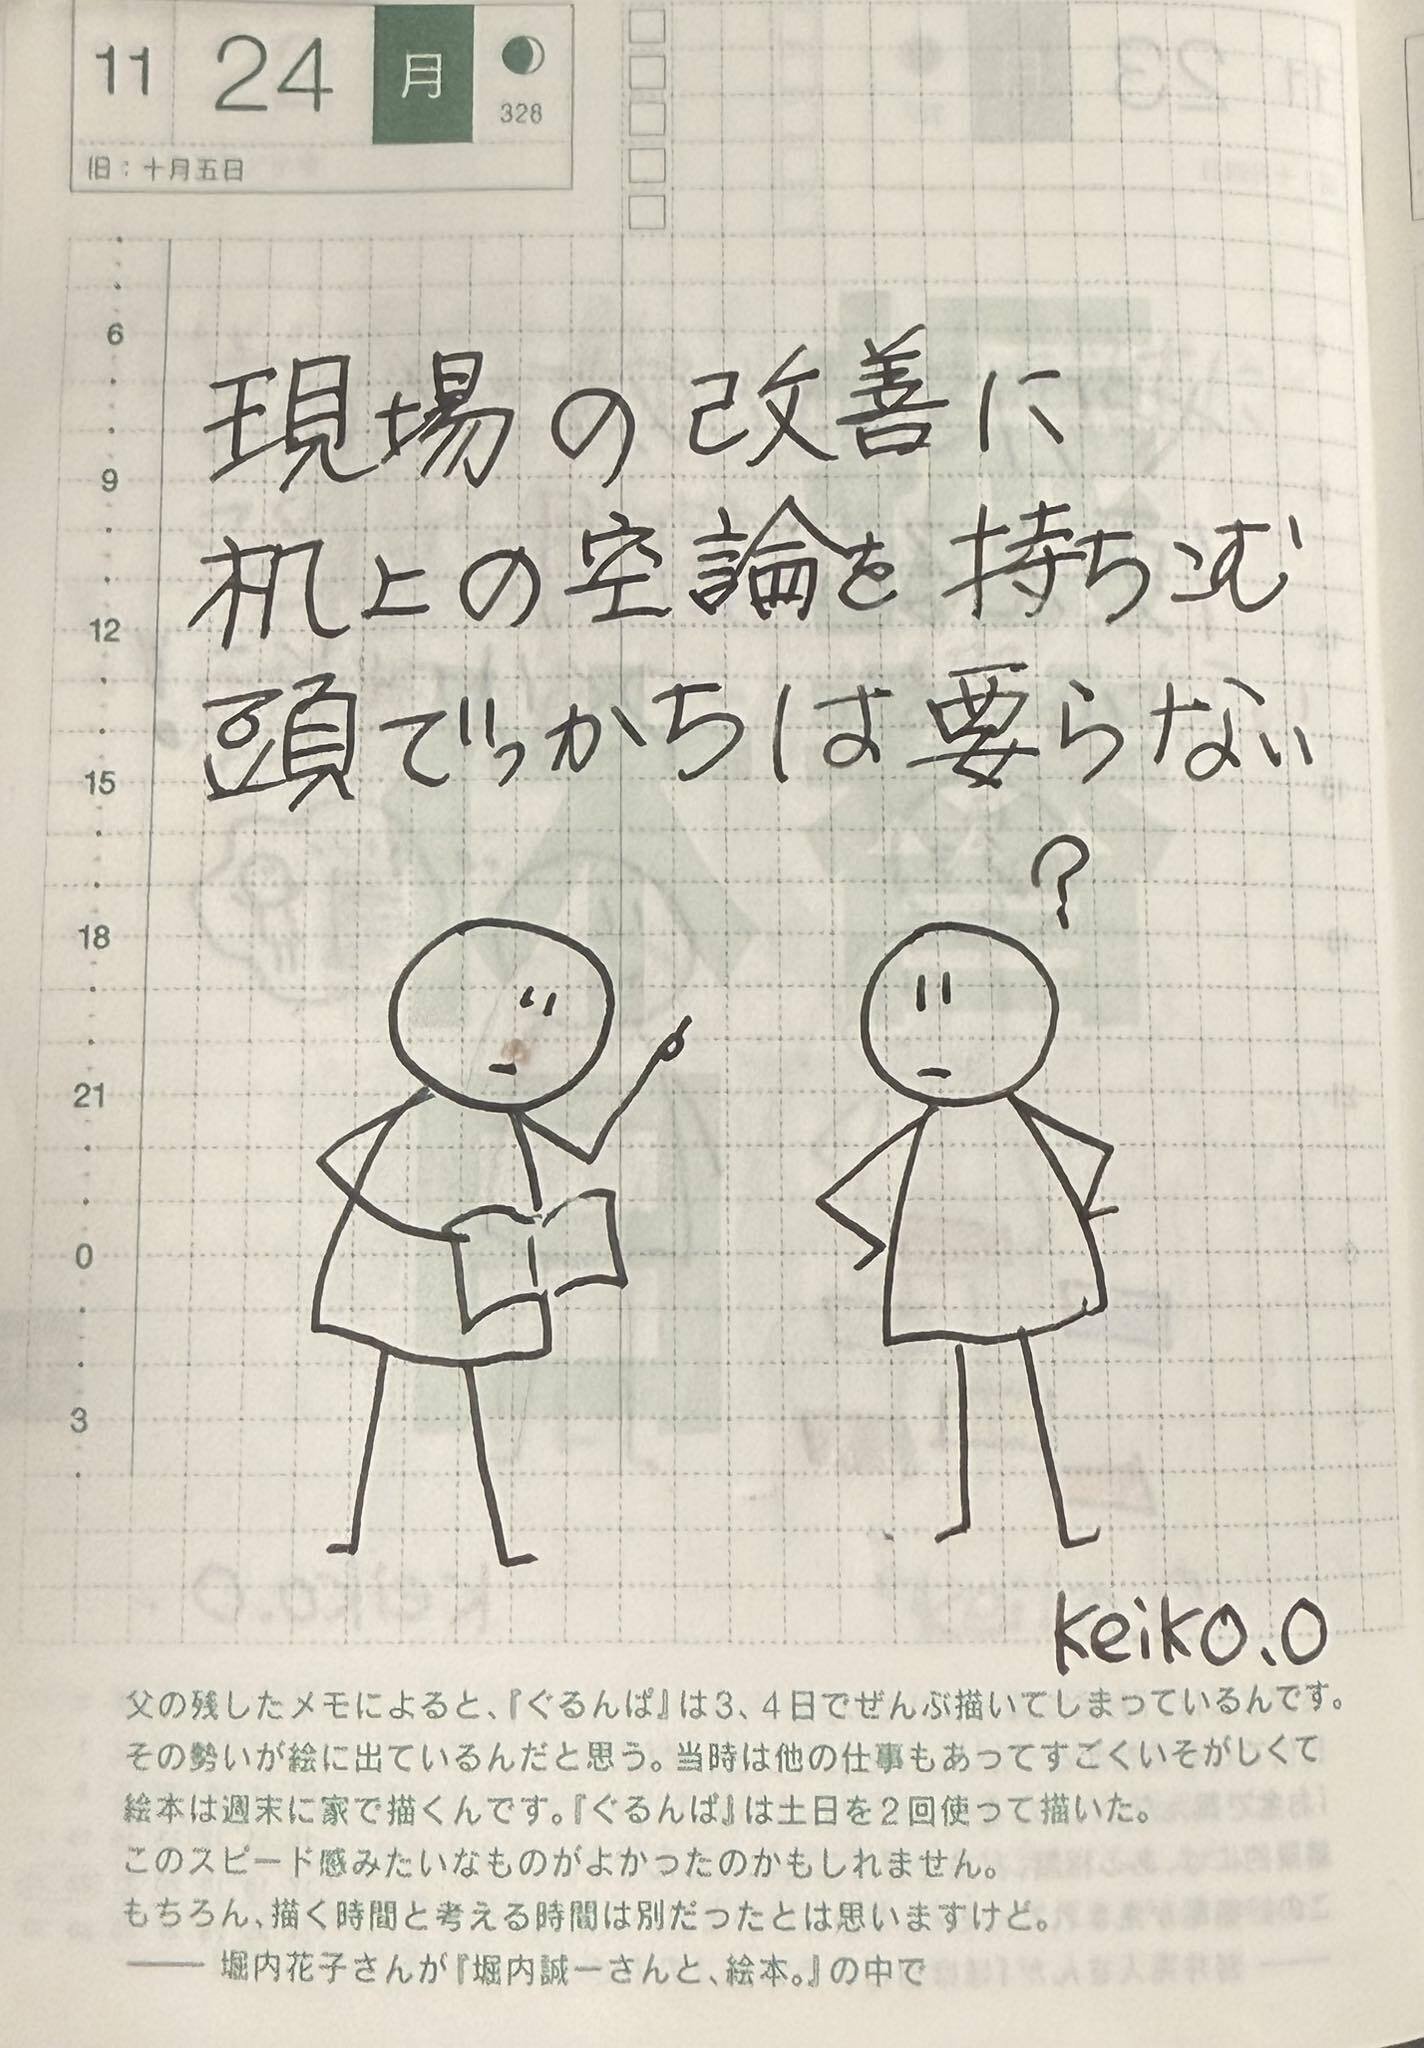 11 24 月
328
旧：十月五日
6
9
12
15
18
21
0
3
現場の改善に
机上の空論を持ちこむ
頭でっかちは要らない
?
Keiko.O
父の残したメモによると、『ぐるんぱ』は3、4日でぜんぶ描いてしまっているんです。
その勢いが絵に出ているんだと思う。当時は他の仕事もあってすごくいそがしくて
絵本は週末に家で描くんです。『ぐるんぱ』は土日を2回使って描いた。
このスピード感みたいなものがよかったのかもしれません。
もちろん、描く時間と考える時間は別だったとは思いますけど。
―― 堀内花子さんが『堀内誠一さんと、絵本。』の中で